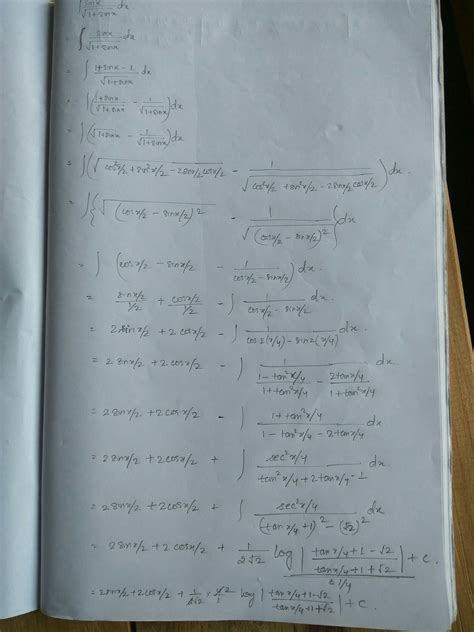 ∫ sinx/√(1+sinx) dx
∫ sinx/√(1+sinx) dx
= ∫ (1+sinx−1)/√(1+sinx) dx
= ∫ ((1+sinx)/√(1+sinx) − 1/√(1+sinx)) dx
= ∫ (√(1+sinx) − 1/√(1+sinx)) dx
= ∫ (√(cos²x/2 + sin²x/2 − 2sinx/2 cosx/2) − 1/√(cos²x/2 + sin²x/2 − 2sinx/2 cosx/2)) dx.
= ∫ {√((cosx/2 − sinx/2)²) − 1/√((cosx/2 − sinx/2)²)} dx
= ∫ (cosx/2 − sinx/2 − 1/(cosx/2 − sinx/2)) dx.
= (sinx/2)/(1/2) + (cosx/2)/(1/2) − ∫ 1/(cosx/2 − sinx/2) dx.
= 2sinx/2 + 2cosx/2 − ∫ 1/(cos2(x/4) − sin2(x/4)) dx.
= 2sinx/2 + 2cosx/2 − ∫ 1/((1−tan²x/4)/(1+tan²x/4) − 2tanx/4/(1+tan²x/4)) dx
= 2sinx/2 + 2cosx/2 − ∫ (1+tan²x/4)/(1−tan²x/4 − 2tanx/4) dx
= 2sinx/2 + 2cosx/2 + ∫ sec²x/4/(tan²x/4 + 2tanx/4 − 1) dx
= 2sinx/2 + 2cosx/2 + ∫ sec²x/4/((tanx/4+1)² − (√2)²) dx
= 2sinx/2 + 2cosx/2 + 1/(2√2) log|(tanx/4+1−√2)/(tanx/4+1+√2)|/(1/4) + c.
= 2sinx/2 + 2cosx/2 + log|(tanx/4+1−√2)/(tanx/4+1+√2)| + c.